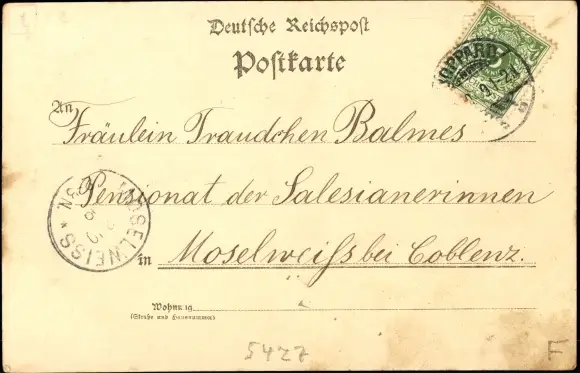 Deutsche Reichspost
Postkarte
BOPPARD
An
Fräulein Traudchen Balmes
Pensionat der Salesianerinnen
in Moselweiss bei Coblenz.
MOSELWEISS *
Wohnung
(Straße und Hausnummer)
5427
F